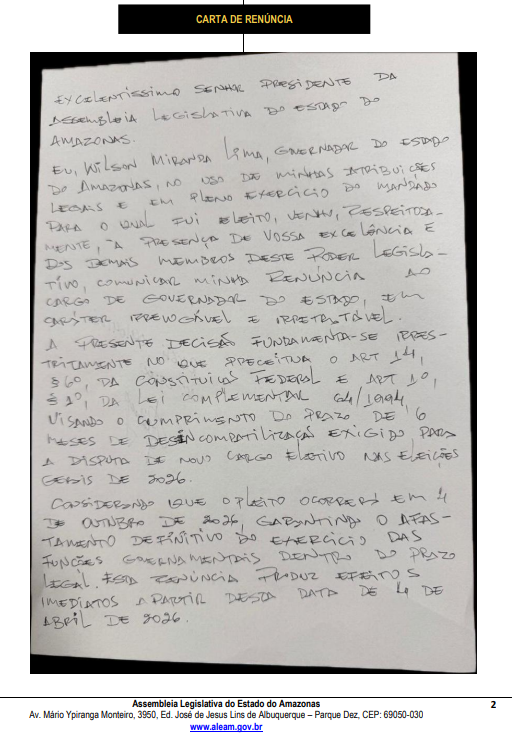 CARTA DE RENÚNCIA
EXCELENTÍSSIMO SENHOR PRESIDENTE DA
ASSEMBLEIA LEGISLATIVA DO ESTADO DO
AMAZONAS.
EU, WILSON MIRANDA LIMA, GOVERNADOR DO ESTADO
DO AMAZONAS, NO USO DE MINHAS ATRIBUIÇÕES
LEGAIS E EM PLENO EXERCÍCIO DO MANDADO
PARA O QUAL FUI ELEITO, VENHO, RESPEITOSA-
MENTE, À PRESENÇA DE VOSSA EXCELÊNCIA E
DOS DEMAIS MEMBROS DESTE PODER LEGISLA-
TIVO, COMUNICAR MINHA RENÚNCIA AO
CARGO DE GOVERNADOR DO ESTADO, EM
CARÁTER IRREVOGÁVEL E IRRETRATÁVEL.
A PRESENTE DECISÃO FUNDAMENTA-SE IRRES-
TRITAMENTE NO QUE PRECEITUA O ART 14,
§ 6º, DA CONSTITUIÇÃO FEDERAL E ART 1º,
§ 1º, DA LEI COMPLEMENTAR 64/1994,
VISANDO O CUMPRIMENTO DO PRAZO DE 6
MESES DE DESINCOMPATILIZAÇÃO EXIGIDO PARA
A DISPUTA DE NOVO CARGO ELETIVO NAS ELEIÇÕES
GERAIS DE 2026.
CONSIDERANDO QUE O PLEITO OCORRERÁ EM 4
DE OUTUBRO DE 2026, GARANTINDO O AFAS-
TAMENTO DEFINITIVO DO EXERCÍCIO DAS
FUNÇÕES GOVERNAMENTAIS DENTRO DO PRAZO
LEGAL. ESTA RENÚNCIA PRODUZ EFEITOS
IMEDIATOS A PARTIR DESTA DATA DE 4 DE
ABRIL DE 2026.
Assembleia Legislativa do Estado do Amazonas
2
Av. Mário Ypiranga Monteiro, 3950, Ed. José de Jesus Lins de Albuquerque – Parque Dez, CEP: 69050-030
www.aleam.gov.br